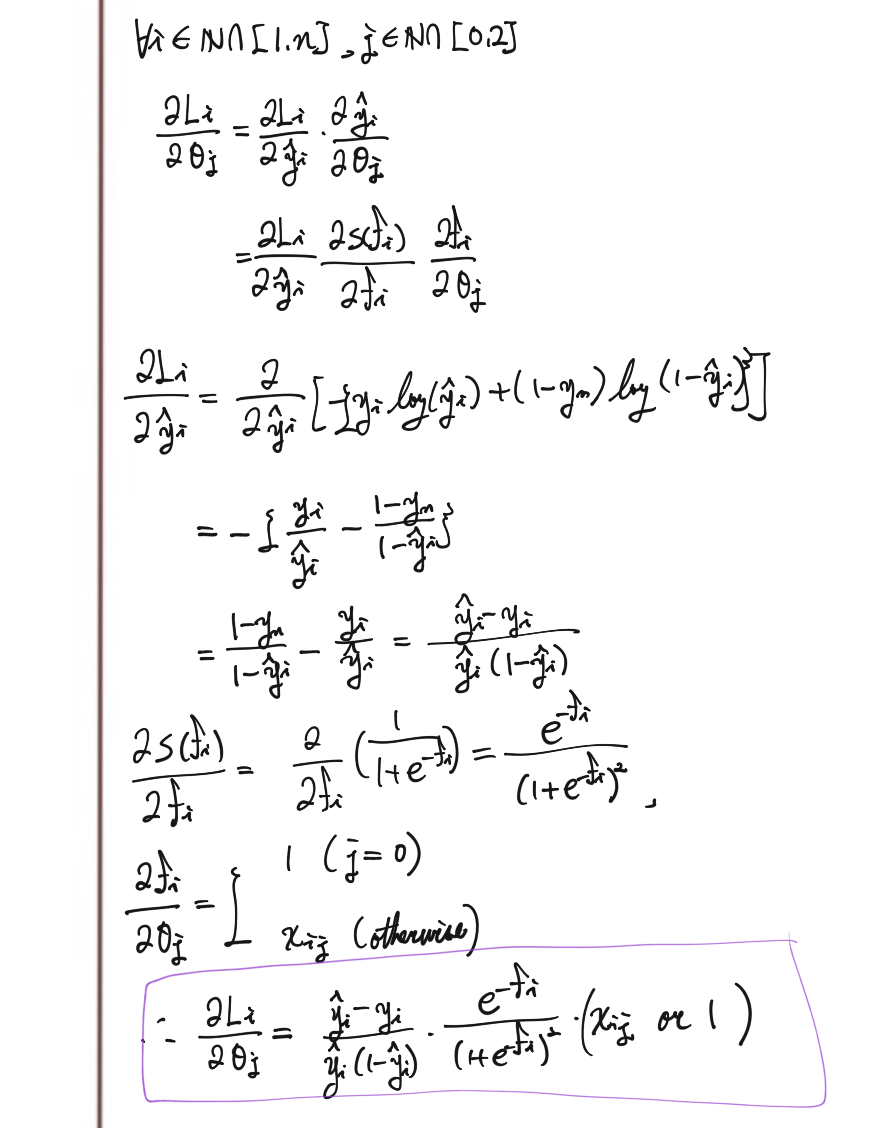 ∀i ∈ ℕ∩[1.n], j ∈ ℕ∩[0,2]
∂Li/∂θj = ∂Li/∂ŷi · ∂ŷi/∂θj
= ∂Li/∂ŷi ∂s(fi)/∂fi ∂fi/∂θj
∂Li/∂ŷi = ∂/∂ŷi [-{yi log(ŷi) + (1-yn) log(1-ŷi)}]
= -{yi/ŷi - (1-yn)/(1-ŷi)}
= (1-yn)/(1-ŷi) - yi/ŷi = (ŷi-yi)/(ŷi(1-ŷi))
∂s(fi)/∂fi = ∂/∂fi (1/(1+e^(-fi))) = e^(-fi)/(1+e^(-fi))²,
∂fi/∂θj = { 1 (j=0)
xij (otherwise)
∴ ∂Li/∂θj = (ŷi-yi)/(ŷi(1-ŷi)) · e^(-fi)/(1+e^(-fi))² · (xij or 1)